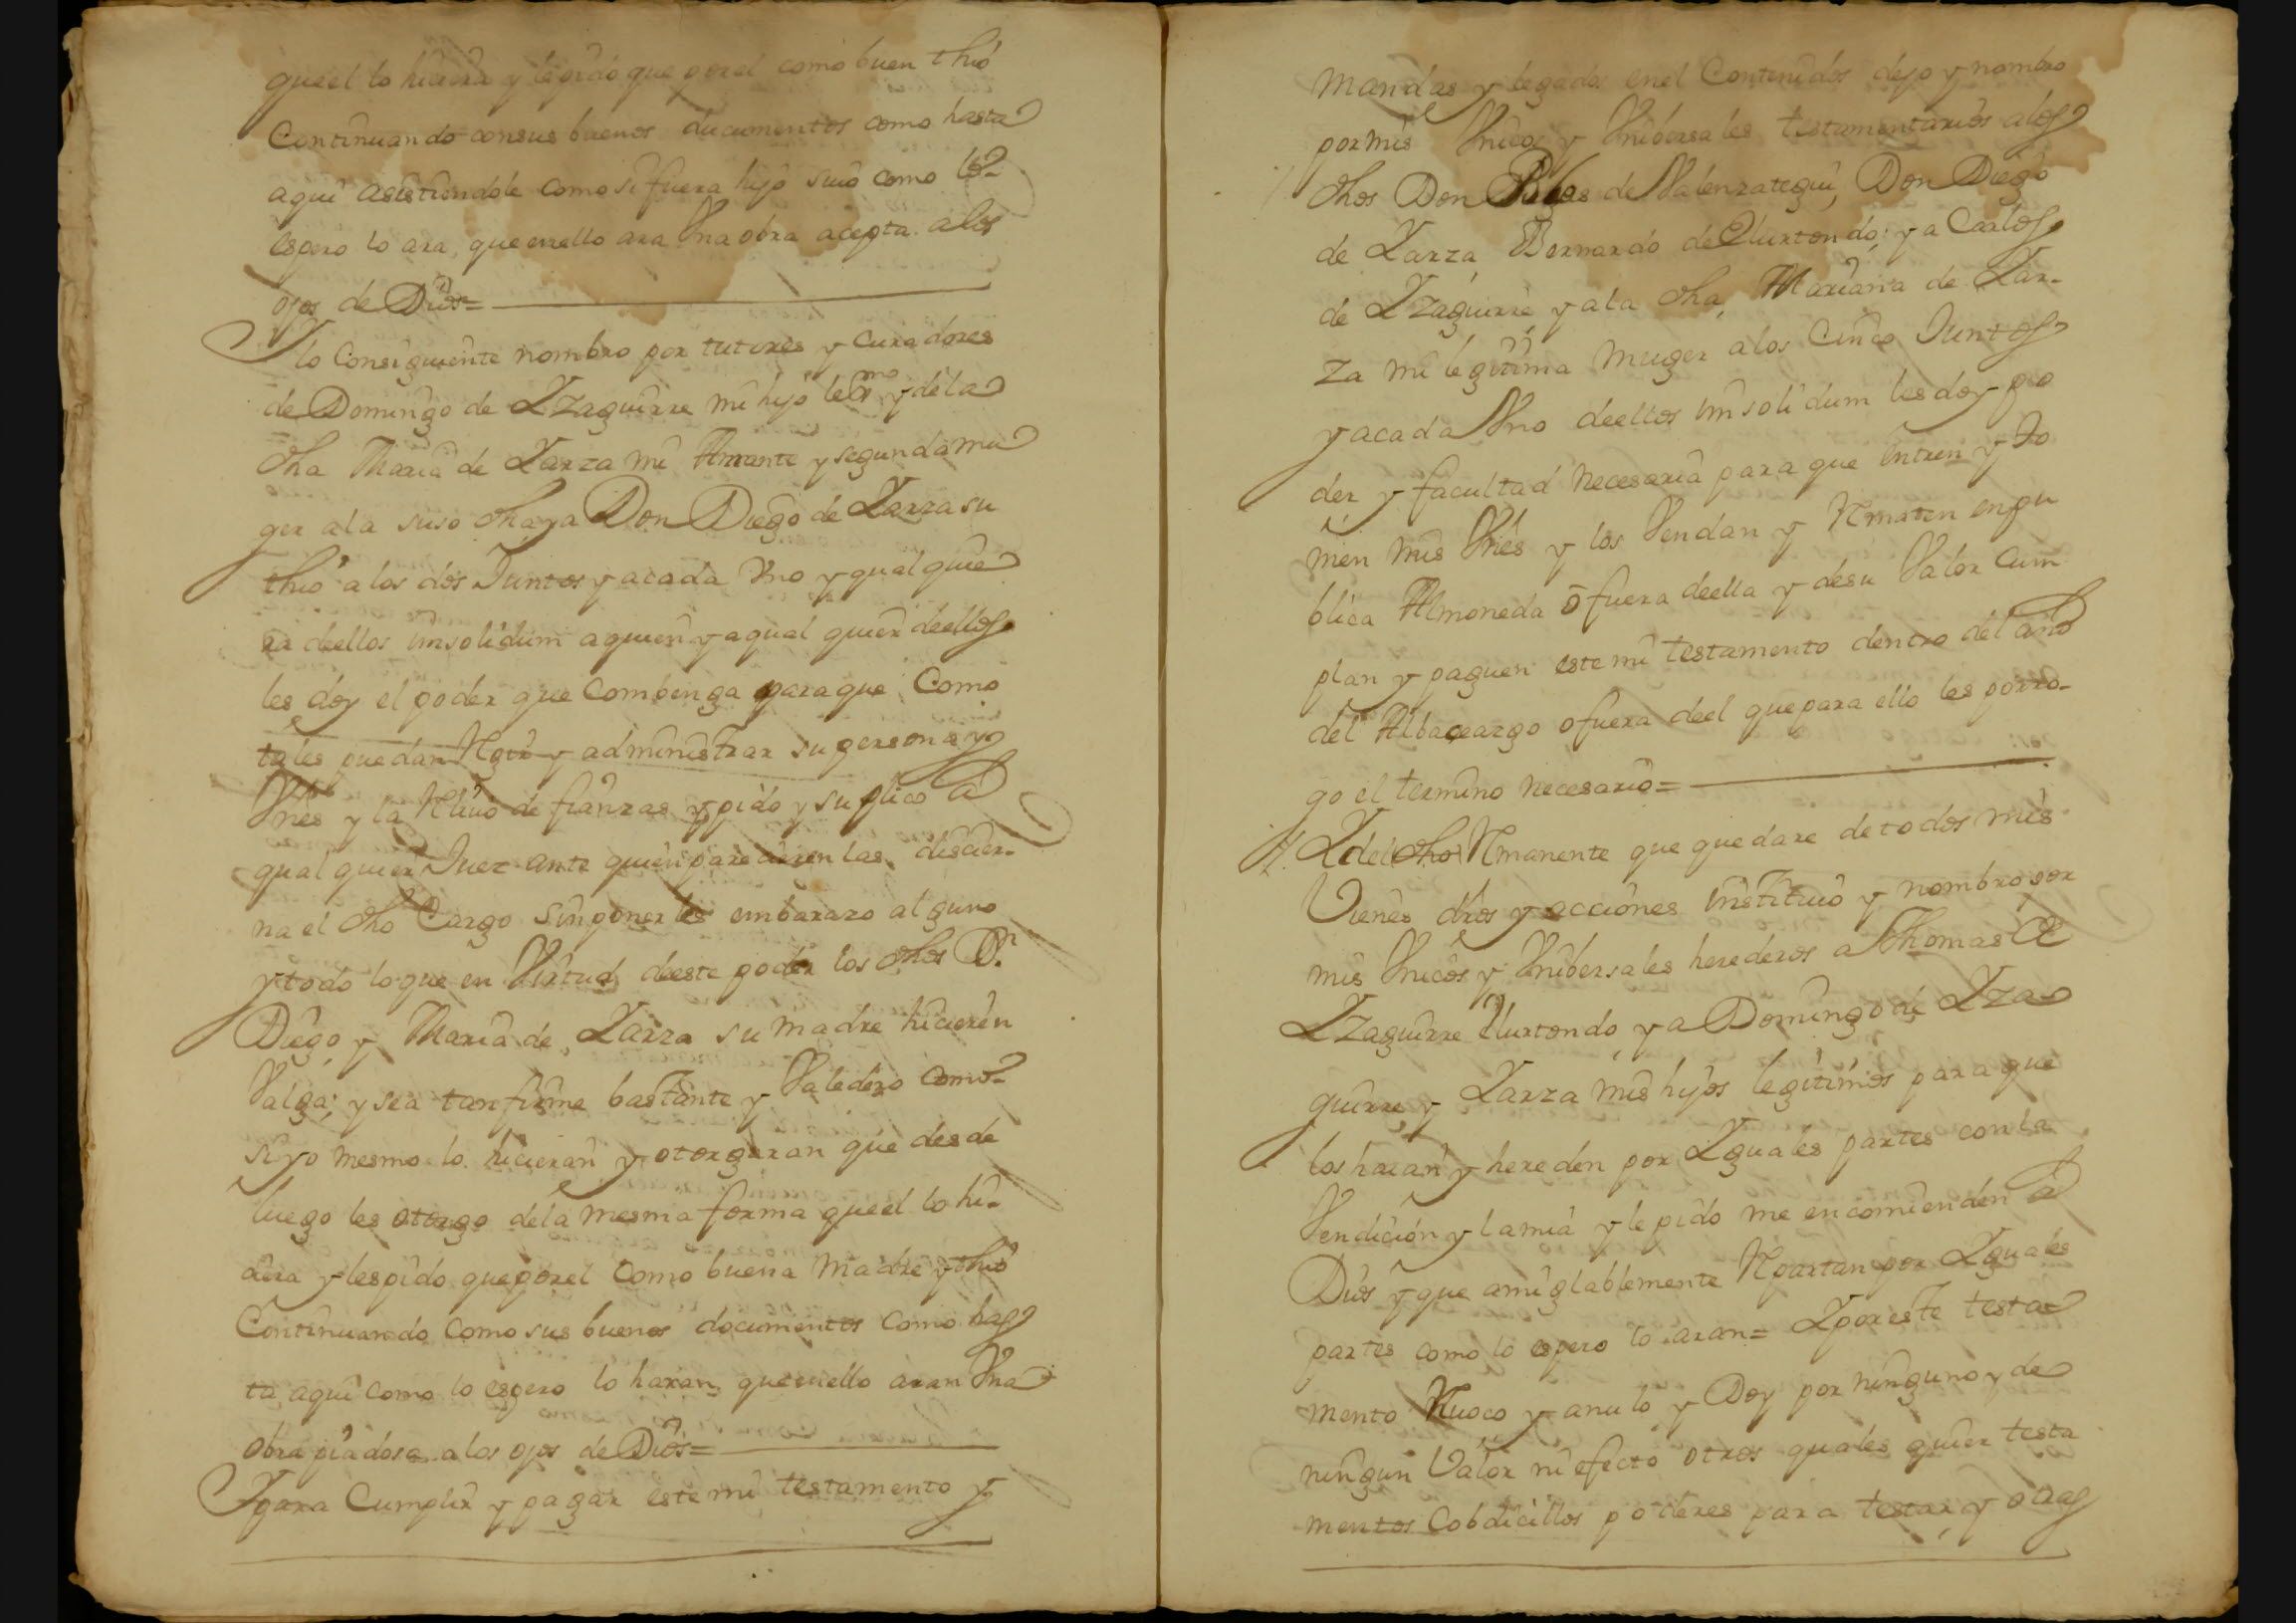 que el lo hiciera y le pido que por el como buen thio
Continuando con sus buenos ducumentos como hasta
aqui asistiendole como si fuera hijo suio como lo
espero lo ara, que en ello ara Vna obra acepta a los
ojos de Dios=
Y lo Consiguiente nombro por tutores y curadores
de Domingo de Yzaguirre mi hijo legmo y de la
dha Maria de Yarza mi Amante y segunda mu
ger a la suso dha y a Don Diego de Yarza su
thio a los dos Juntos y a cada Vno y qual quie
ra de ellos insolidum a quien y a qual quier de ellos
les doy el poder que Combenga para que Como
tales puedan Rgir y administrar su persona y
Vnes y la Rlivo de fianzas y pido y suplico a
qual quier Juez ante quien parecieren las discier-
na el dho Cargo sin ponerles embarazo alguno
y todo lo que en Virtud de este poder los dhos Dn
Diego y Maria de Yarza su madre hicieren
Valga, y sea tan firme bastante y Valedero como
si yo mesmo lo hicieran y otorgaran que desde
luego les otorgo de la mesma forma que el lo hi-
ciera y les pido que por el Como buena Madre y thio
Continuando Como sus buenos documentos Como has
ta aqui como lo espero lo haran, que en ello aran Vna
obra piadosa a los ojos de Dios=
Y para Cumplir y pagar este mi testamento y
mandas y legados en el Contenidos dejo y nombro
por mis Vnicos y Vnibersales testamentarios a los
dhos Don de Valenzategui, Don Diego
de Yarza Bernardo de Elurtondo, y a Carlos
de Yzaguirre y a la dha Mariana de Yar-
za mi legitima muger a los Cinco Juntos
y a cada Vno de ellos insolidum les doy po
der y facultad necesaria para que entren y to
men mis Vnes y los Vendan y Rmaten en pu
blica Almoneda o fuera de ella y de su Valor Cum
plan y paguen este mi testamento dentro del año
del Albaceazgo o fuera de el que para ello les porro-
go el termino necesario=
Y del dho Rmanente que quedare de todos mis
Vienes dros y acciones instituio y nombro por
mis Vnicos y Vnibersales herederos a Thomas de
Yzaguirre Elurtondo y a Domingo de Yza
guirre y Yarza mis hijos legitimos para que
los haian y hereden por Yguales partes con la
Vendición y la mia y le pido me encomienden a
Dios y que amiglablemente Rpartan por Yguales
partes como lo espero lo aran= Y por este testa
mento Rvoco y anulo y Doy por ninguno y de
ningun Valor ni efecto otros quales quier testa
mentos Cobdicillos poderes para testar y otras